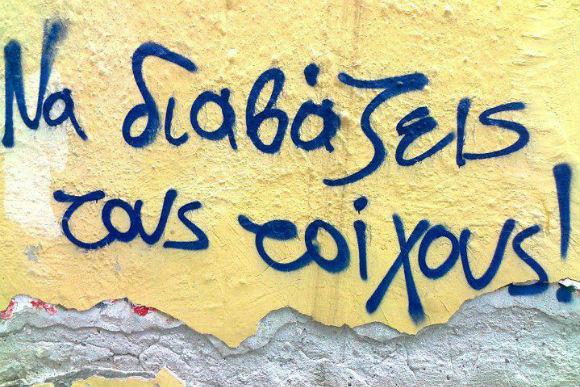 Να διαβάζεις
τους τοίχους!